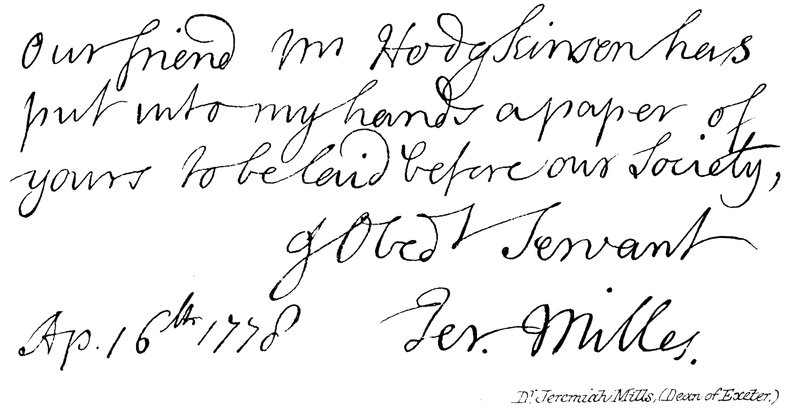 Our friend Mr Hodgkinson has
put into my hands a paper of
yours to be laid before our Society,
y Obedt Servant
Ap. 16th 1778 Jer. Milles.
Dr. Jeremiah Mills, (Dean of Exeter.)